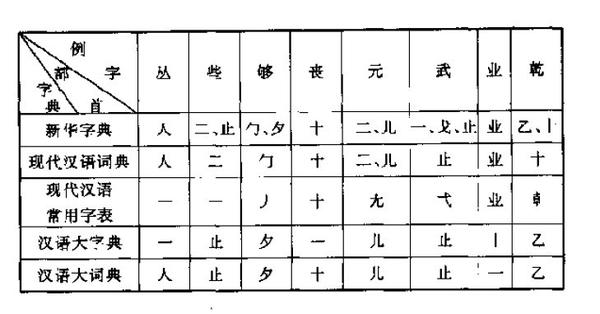 例 字 部 首 字 典 丛 些 够 丧 元 武 业 乾
新华字典 人 二、止 勹、夕 十 二、儿 一、戈、止 业 乙、丨
现代汉语词典 人 二 勹 十 二、儿 止 业 十
现代汉语
常用字表 一 一 丿 十 尢 弋 业 龺
汉语大字典 一 止 夕 一 儿 止 丨 乙
汉语大词典 人 止 夕 十 儿 止 一 乙